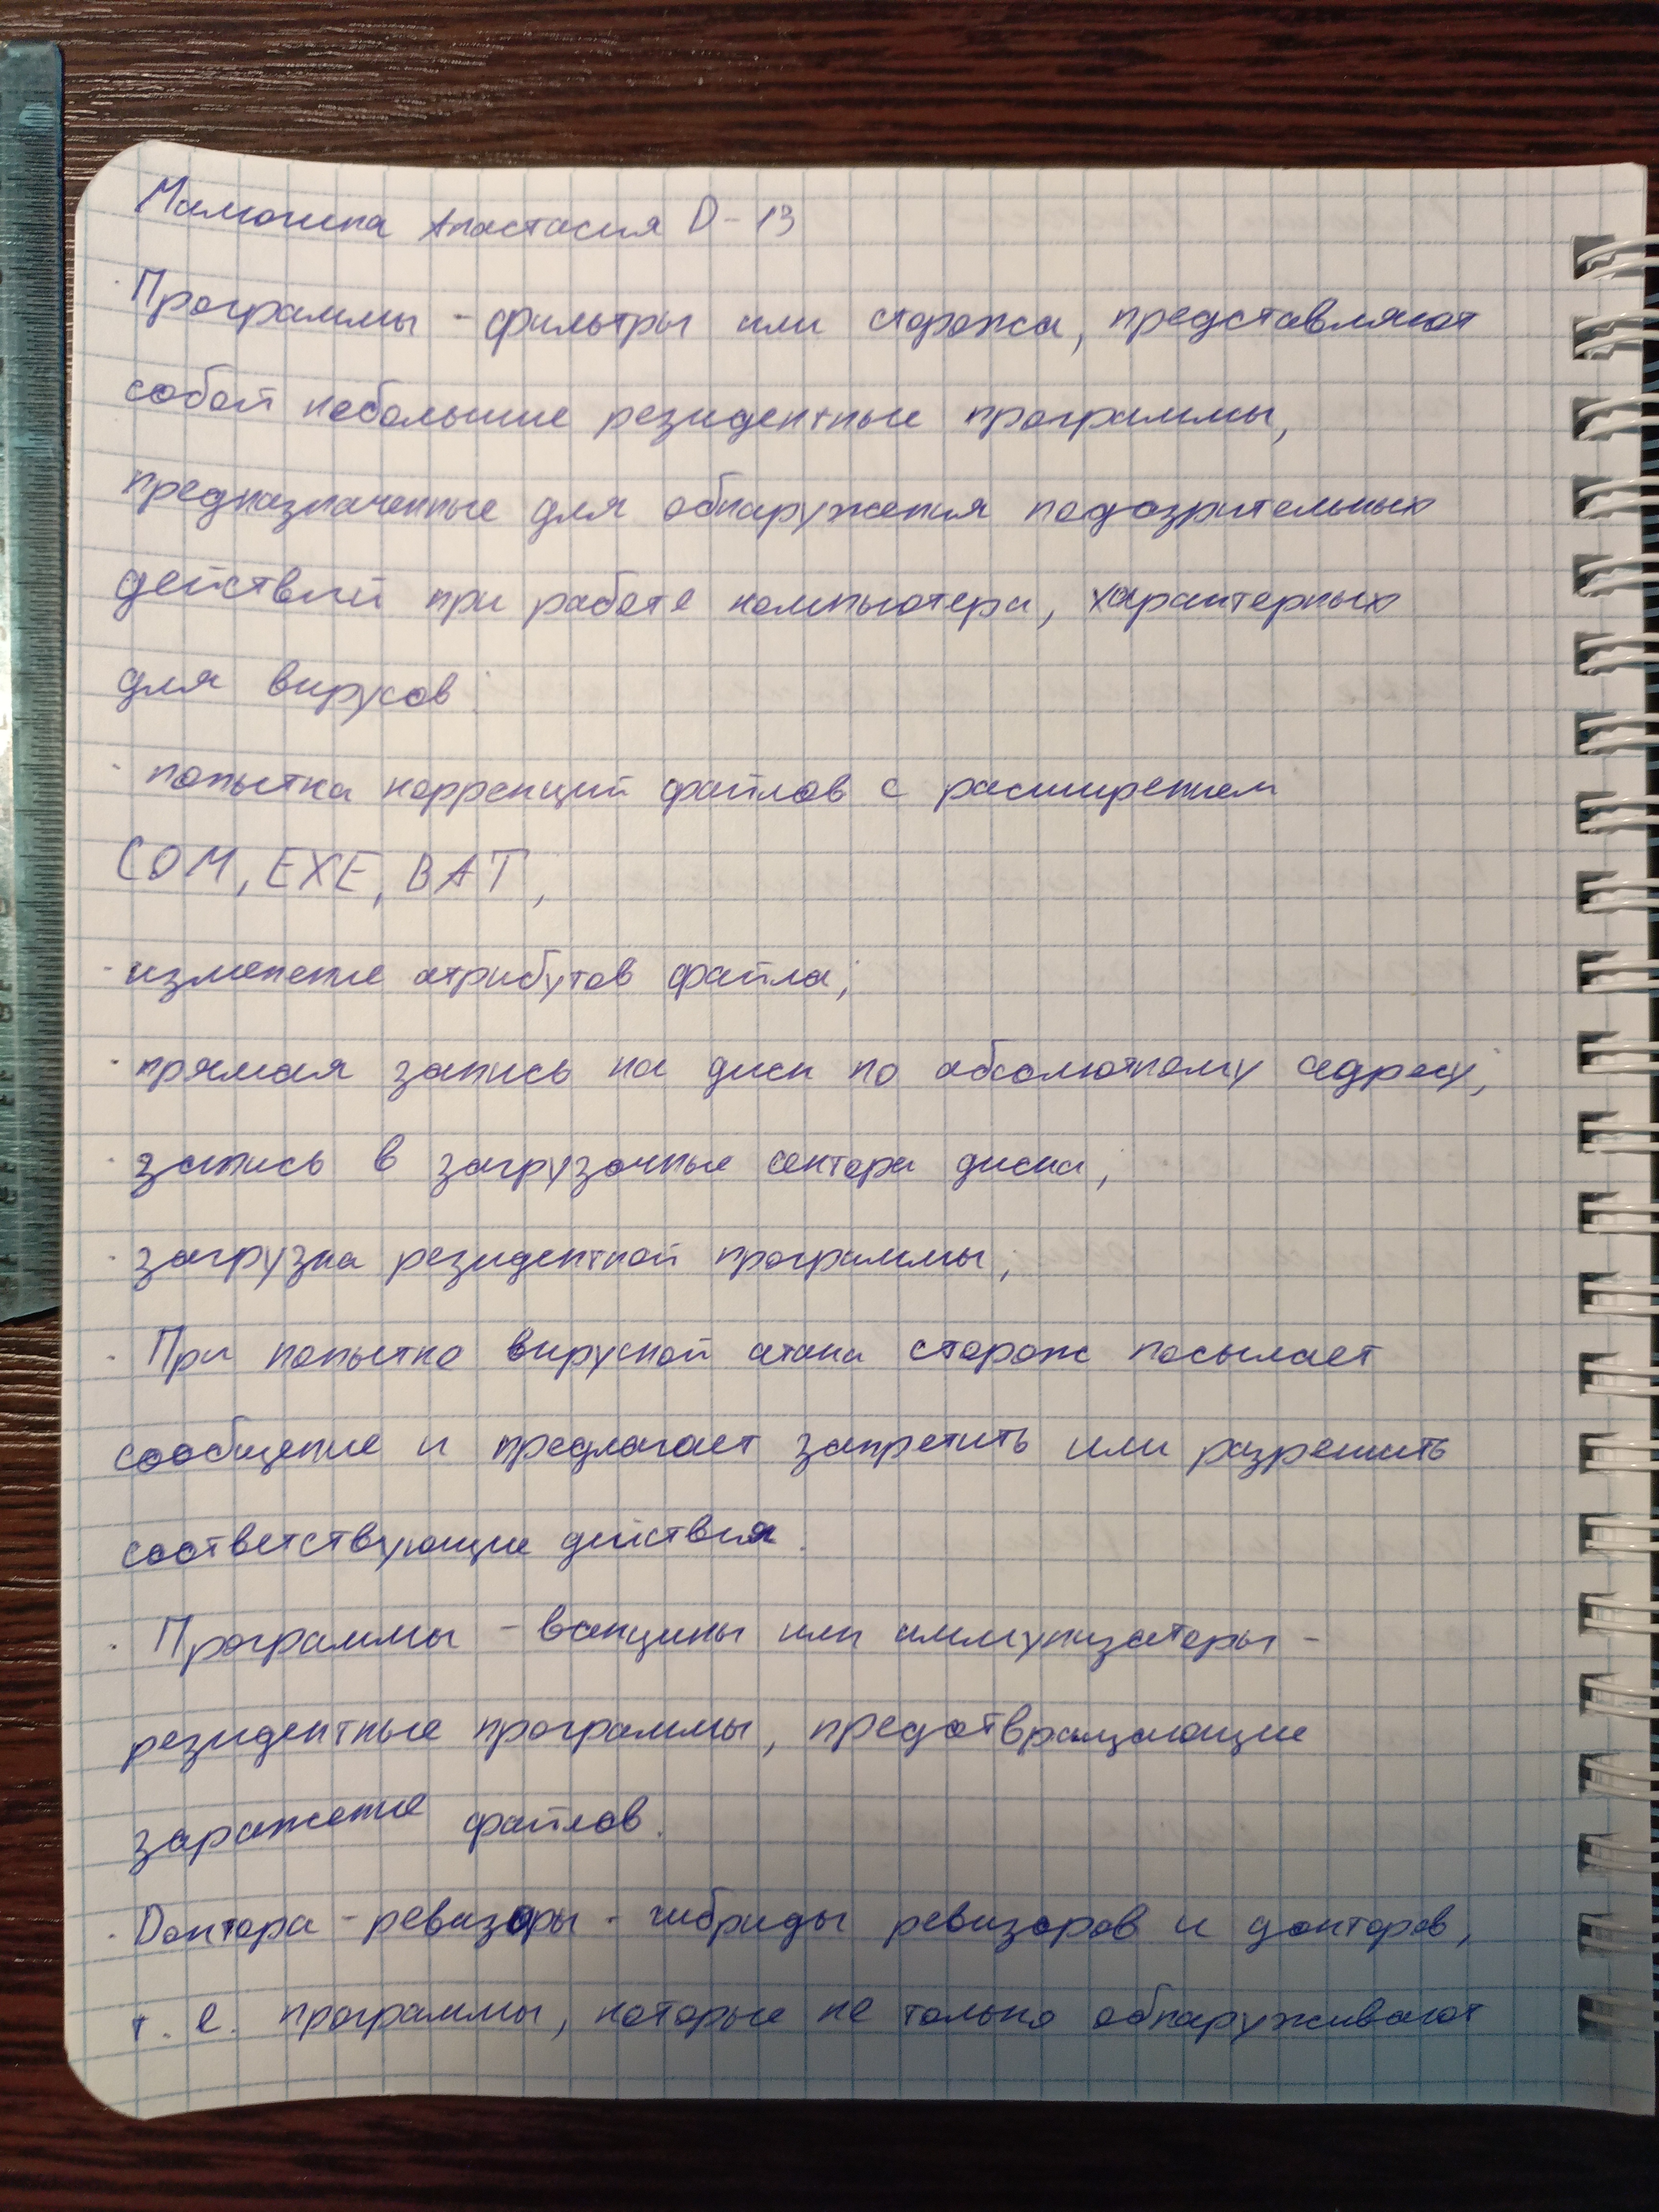 Мамошина Анастасия D-13
· Программы - фильтры или сторожа, представляют
собой небольшие резидентные программы,
предназначенные для обнаружения подозрительных
действий при работе компьютера, характерных
для вирусов:
· попытка коррекций файлов с расширением
COM, EXE, BAT,
- изменение атрибутов файла;
· прямая запись на диск по абсолютному адресу;
· запись в загрузочные сектора диска;
· загрузка резидентной программы;
· При попытке вирусной атаки сторож посылает
сообщение и предлагает запретить или разрешить
соответствующие действия.
· Программы - вакцины или иммунизаторы -
резидентные программы, предотвращающие
заражение файлов.
· Доктора - ревизоры - гибриды ревизоров и докторов,
т. е. программы, которые не только обнаруживают